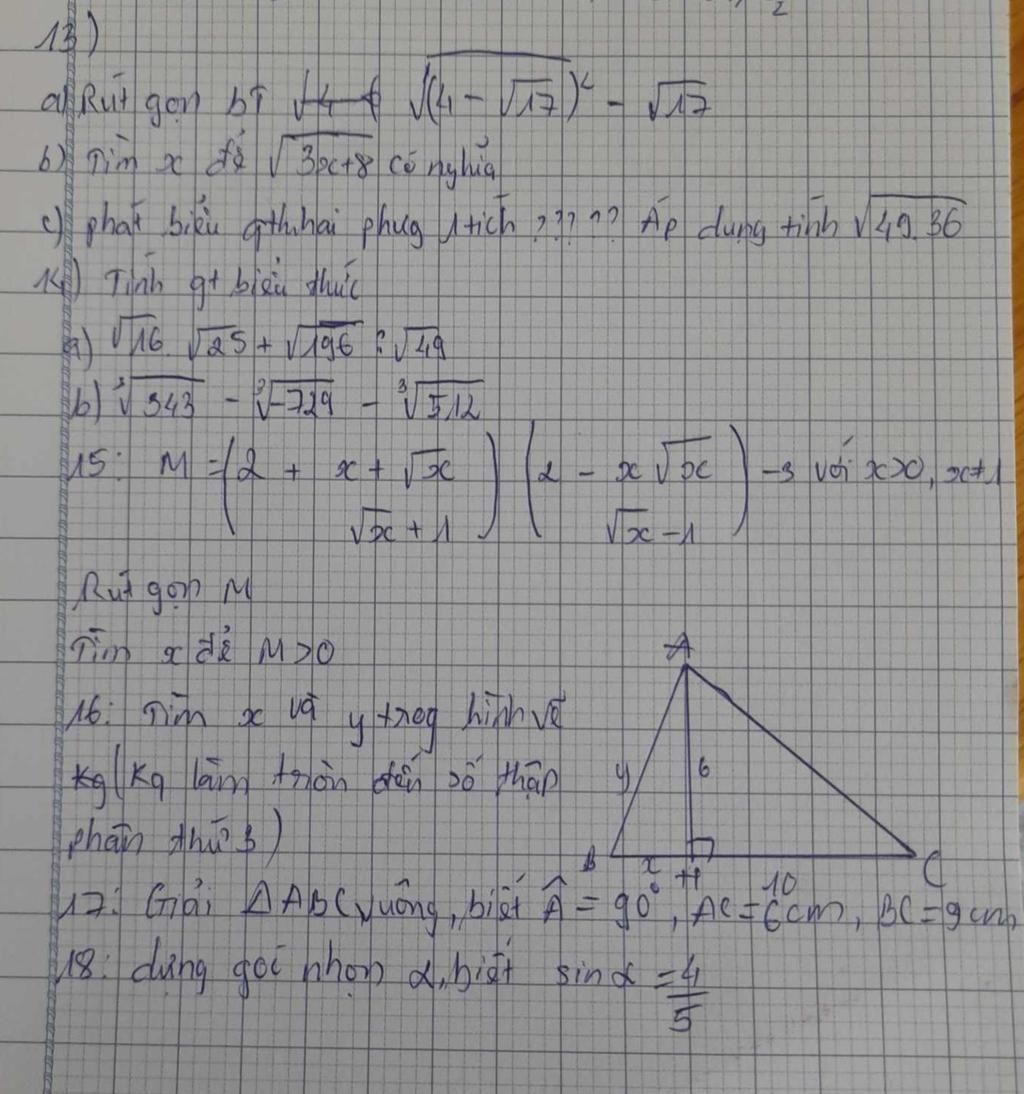 13)
a) Rút gọn bT √(4-√17)² - √17
b) Tìm x để √3x+8 có nghĩa
c) phát biểu qt khai phug 1 tích ????? Áp dụng tính √49.36
14) Tính gt biểu thức
a) √16. √25 + √196 : √49
b) ³√343 - ³√-729 - ³√512
15: M = (2 + x + √x / √x + 1) (2 - x √x / √x - 1) -3 với x>0, x≠1
Rút gọn M
Tìm x để M>0
A
16: Tìm x và y trog hình vẽ
kq (kq làm tròn đến số thập
y 6
phân thứ 3)
B x H 10 C
17: Giải ΔABC vuông, biết Â = 90°, AC = 6cm, BC = 9cm
18: dựng góc nhọn α, biết sin α = 4/5